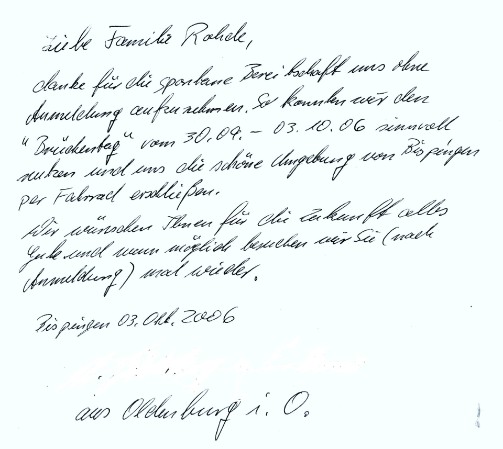 Liebe Familie Rohde,
danke für die spontane Bereitschaft uns ohne
Anmeldung aufzunehmen. So konnten wir den
"Brückentag" vom 30.09. – 03.10.06 sinnvoll
nutzen und uns die schöne Umgebung von Bispingen
per Fahrrad erschließen.
Wir wünschen Ihnen für die Zukunft alles
Gute und wenn möglich besuchen wir Sie (nach
Anmeldung) mal wieder.
Bispingen 03. Okt. 2006
aus Oldenburg i. O.